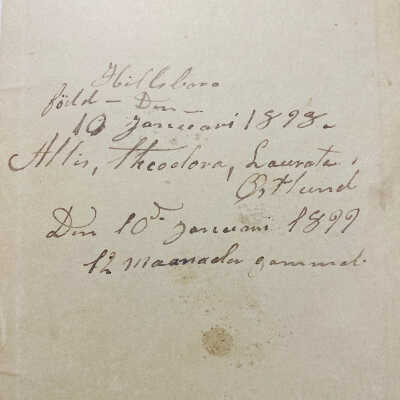 Hillsboro
född — Den —
10 Januari 1898.
Allis, Theodora, Laurata,
Östlund
Den 10de Januari 1899
12 maanader gammal.